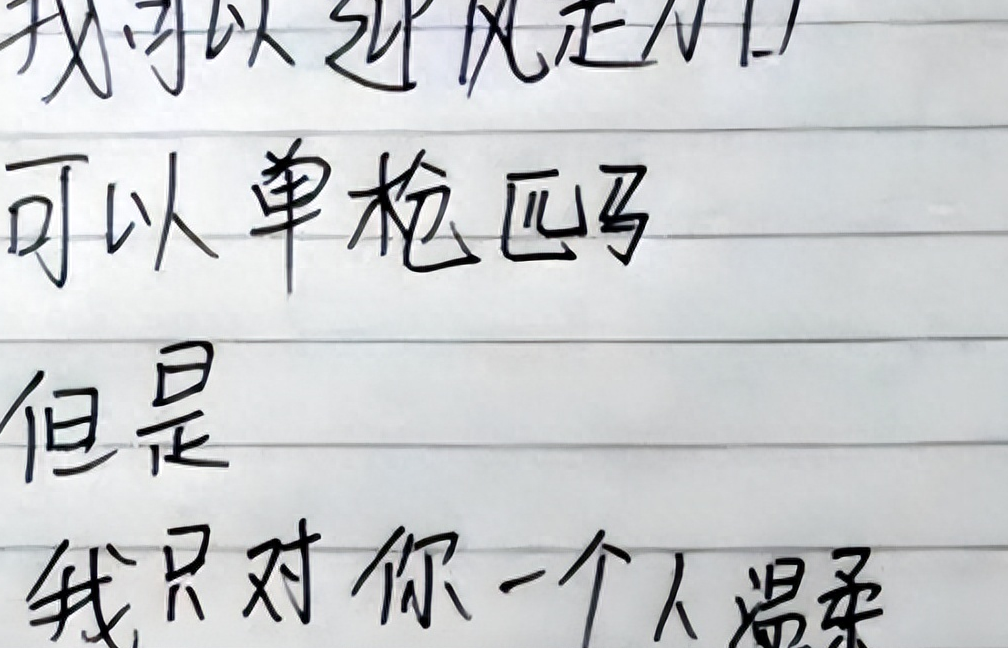 我可以迎风走
可以单枪匹马
但是
我只对你一个人温柔